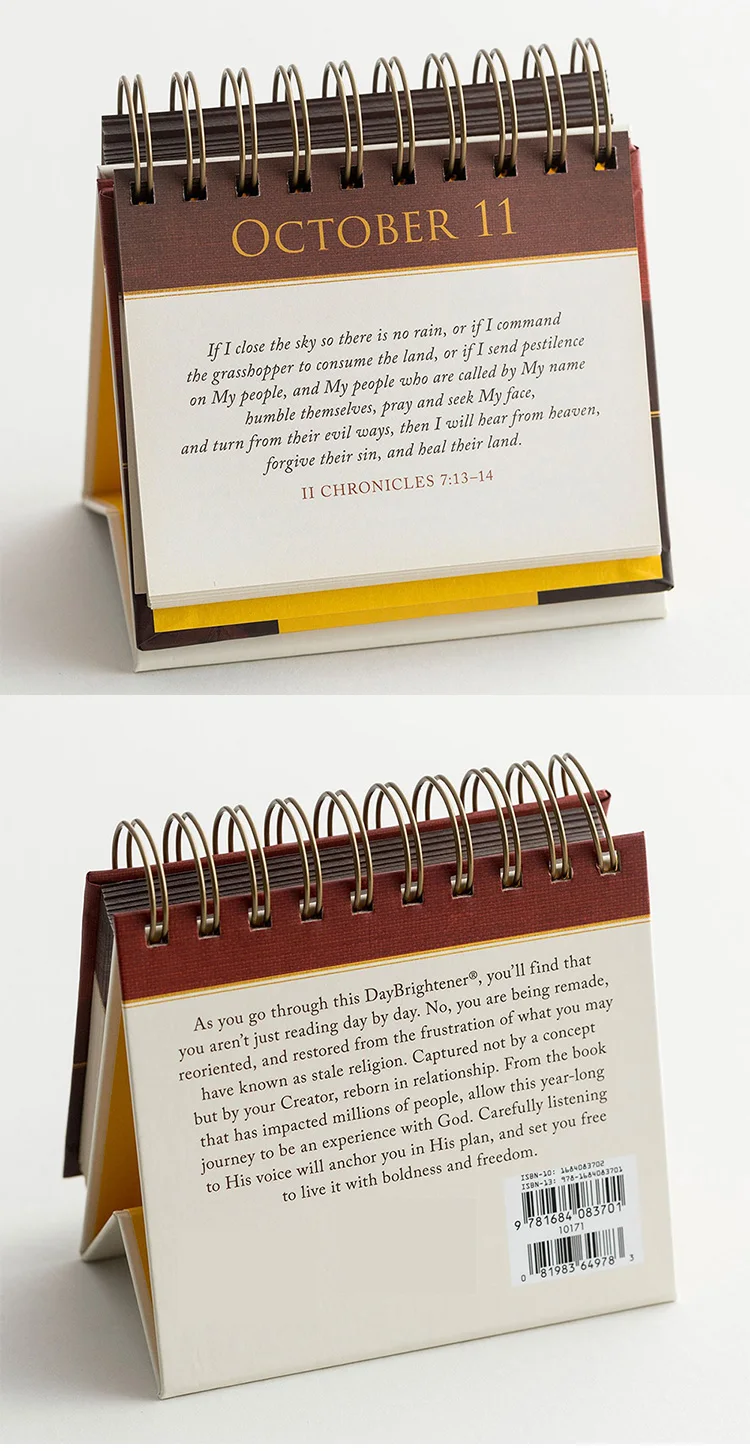 OCTOBER 11
If I close the sky so there is no rain, or if I command
the grasshopper to consume the land, or if I send pestilence
on My people, and My people who are called by My name
humble themselves, pray and seek My face,
and turn from their evil ways, then I will hear from heaven,
forgive their sin, and heal their land.
II CHRONICLES 7:13–14
As you go through this DayBrightener®, you'll find that
you aren't just reading day by day. No, you are being remade,
reoriented, and restored from the frustration of what you may
have known as stale religion. Captured not by a concept
but by your Creator, reborn in relationship. From the book
that has impacted millions of people, allow this year-long
journey to be an experience with God. Carefully listening
to His voice will anchor you in His plan, and set you free
to live it with boldness and freedom.
ISBN-10: 1684083702
ISBN-13: 978-1684083701
9 781684 083701
10171
0 81983 64978 3